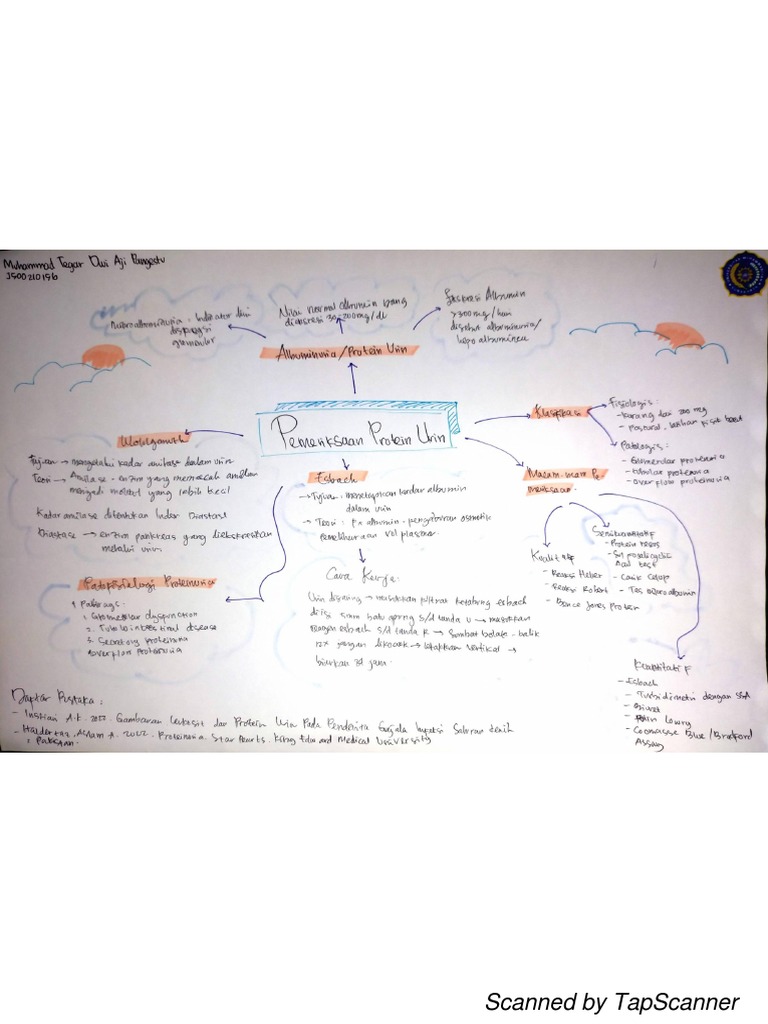 Muhammad Tegar Dwi Aji Pangestu
J500210156
Mikroalbuminuria : Indikator dini
disfungsi
glomerulor
Nilai normal albumin yang
diekskresi 30-200 mg/dl
Ekskresi Albumin
>300 mg/hari
disebut albuminuria/
Albuminuria/Protein Urin
Pemeriksaan Protein Urin
Klasifikasi
Fisiologis :
- kurang dari 200 mg
- Postural, latihan fisik berat
Patologis :
- Glomerular proteinuria
- tubular proteinuria
- overflow proteinuria
Wohlgemuth
Tujuan → mengetahui kadar amilase dalam urin
Teori → Amilase - enzim yang memecah amilum
menjadi molekul yang lebih kecil
Kadar amilase ditentukan Inder Diastasi
Diastase → enzim pankreas yang diekskresikan
melalui urin
Esbach
→ Tujuan : menetapkan kadar albumin
dalam urin
→ Teori : Fx albumin - pengaturan osmotik
pemeliharaan vol plasma
Macam-macam Pe
meriksaan
Cara Kerja
Urin disaring → masukkan filtrat ke tabung esbach
diisi sama batu apung s/d tanda U → masukkan
reagen esbach s/d tanda R → Sumbat bolak - balik
12x jangan dikocok → letakkan vertikal →
biarkan 24 jam
Kualitatif
- Reaksi Heller
- Reaksi Robert
- Bence Jones Protein
Semikuantitatif
- Protein
- Acid test
- Carik Celup
- Tes mikroalbumin
Patofisiologi Proteinuria
4 Pathways :
1. Glomerular dysfunction
2. Tubulointerstinal disease
3. Secretory Proteinuria
Overflow Proteinuria
Kuantitatif
- Esbach
- Turbidimetri dengan SSA
- Biuret
- Lowry
- Coomassie Blue / Bradford
Assay
Daftar Pustaka :
- A.K. Gambaran Leukosit dar Protein Urin Pada Penderita Gejala Infeksi Saluran Kemih
- Haider MZ, Aslam A. 2022. Proteinuria. Star Pearls. King Edward Medical University
: Pakistan
Scanned by TapScanner